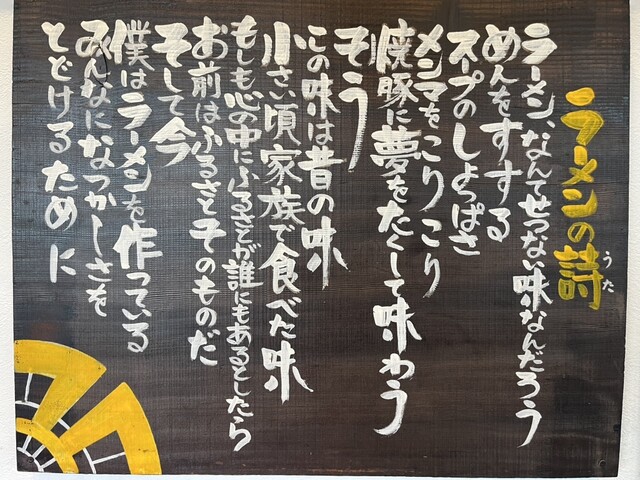 ラーメンの詩
うた
ラーメン、なんてせつない味なんだろう
めんをすする
スープのしょっぱさ
メンマをこりこり
焼豚に夢をたくして味わう
そう
この味は昔の味
小さい頃家族で食べた味
もしも心の中にふるさとが誰にもあるとしたら
お前はふるさとそのものだ
そして今
僕はラーメンを作っている
みんなになつかしさを
とどけるために